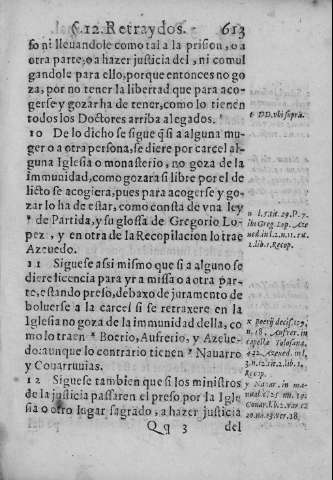 §.12. Retraydos. 613
so ni lleuandole como tal a la prision, o a
otra parte, o a hazer justicia del, ni comul
gandole para ello, porque entonces no go
za, por no tener la libertad que para aco-
gerse y gozar ha de tener, como lo tienen
todos los Doctores arriba alegados. ᵗ
10 De lo dicho se sigue q̃ si a alguna mu-
ger o a otra persona, se diere por carcel al-
guna Iglesia o monasterio, no goza de la
immunidad, como gozara si libre por el de
licto se acogiera, pues para acogerse y go-
zar lo ha de estar, como consta de vna ley
ᵘ de Partida, y su glossa de Gregorio Lo-
pez, y en otra de la Recopilacion lo trae
Azeuedo.
11 Siguese assi mismo que si a alguno se
diere licencia para yr a missa o a otra par-
te, estando preso, debaxo de juramento de
boluerse a la carcel si se retraxere en la
Iglesia no goza de la immunidad della, co-
mo lo traen ˣ Boerio, Aufrerio, y Azeue-
do: aunque lo contrario tienen ʸ Nauarro
y Couarruuias.
12 Siguese tambien que si los ministros
de la justicia passaren el preso por la Igle
sia o otro lugar sagrado, a hazer justicia
Qq 3 del
t DD. vbi supra.
u l. 29. p. 7.
ibi Greg. Lop. Aze
ued. in l. 2. n. 11. tit.
2. lib. 1. Recop.
x Boerij decis. 129,
n. 18. Aufrer. in
capellæ Tolosana,
422. Azeued. in l.
3. n. 12. tit. 2. lib. 1.
Recop.
y Nauar. in ma-
nual. c. 25.
Couar. l. 2. var. c.
20. ver. 18.